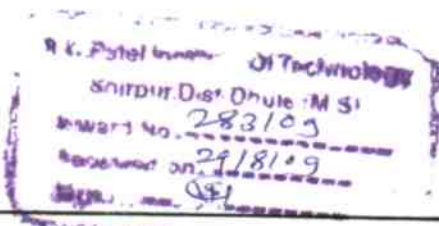 R. C. Patel Of Technology
Shirpur Dist Dhule (M S)
Inward No. 283/09
Received on 29/8/09
Sign.